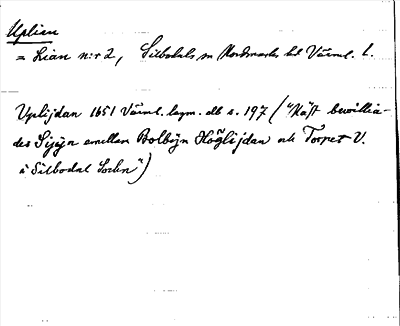 Uplien
= Lian n:r 2, Silbodals sn Nordmarks hd Värml. l.
Uplijdan 1651 Värml. lagm. db s. 197 ("Näst bewillia-
des Sijyn emellan Bolbÿn Höglijdan och Torpet U.
i Silbodal Sochn")